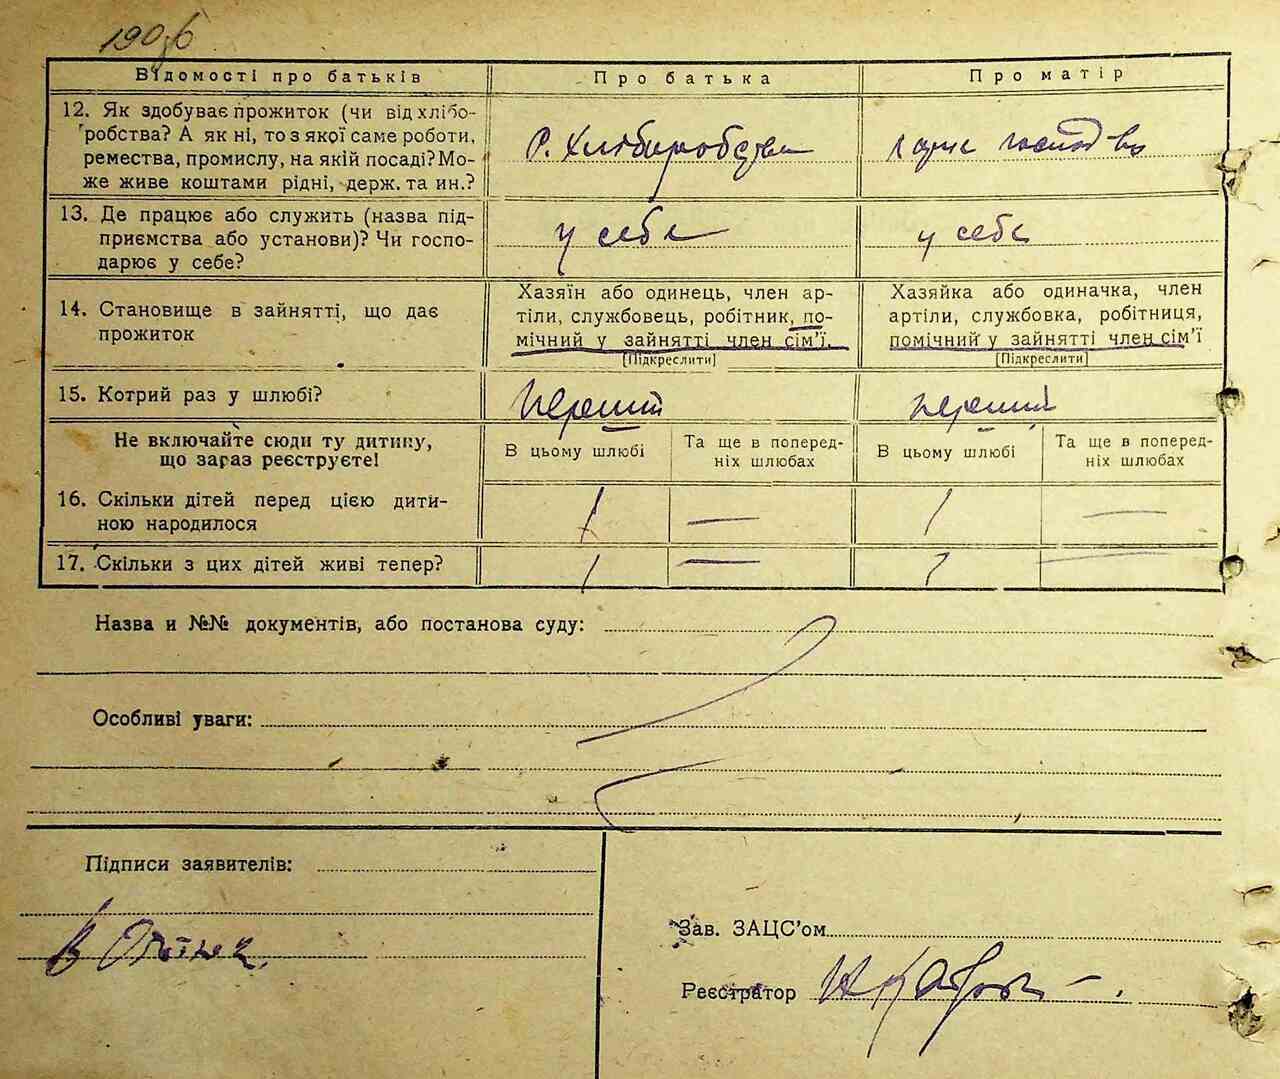 1906
Відомості про батьків
Про батька
Про матір
12. Як здобуває прожиток (чи від хлібо-
робства? А як ні, то з якої саме роботи,
ремества, промислу, на якій посаді? Мо-
же живе коштами рідні, держ. та ин.?
Р. Хліборобства
господ
13. Де працює або служить (назва під-
приємства або установи)? Чи госпо-
дарює у себе?
у себе
у себе
14. Становище в зайнятті, що дає
прожиток
Хазяїн або одинець, член ар-
тіли, службовець, робітник, по-
мічний у зайнятті член сім'ї.
[Підкреслити]
Хазяйка або одиначка, член
артіли, службовка, робітниця,
помічний у зайнятті член сім'ї
[Підкреслити]
15. Котрий раз у шлюбі?
перший
перший
Не включайте сюди ту дитину,
що зараз реєструєте!
В цьому шлюбі
Та ще в поперед-
ніх шлюбах
В цьому шлюбі
Та ще в поперед-
ніх шлюбах
16. Скільки дітей перед цією дити-
ною народилося
1 — 1 —
17. Скільки з цих дітей живі тепер?
1 — 1 —
Назва и №№ документів, або постанова суду:
Особливі уваги:
Підписи заявителів:
Зав. ЗАЦС'ом
Реєстратор